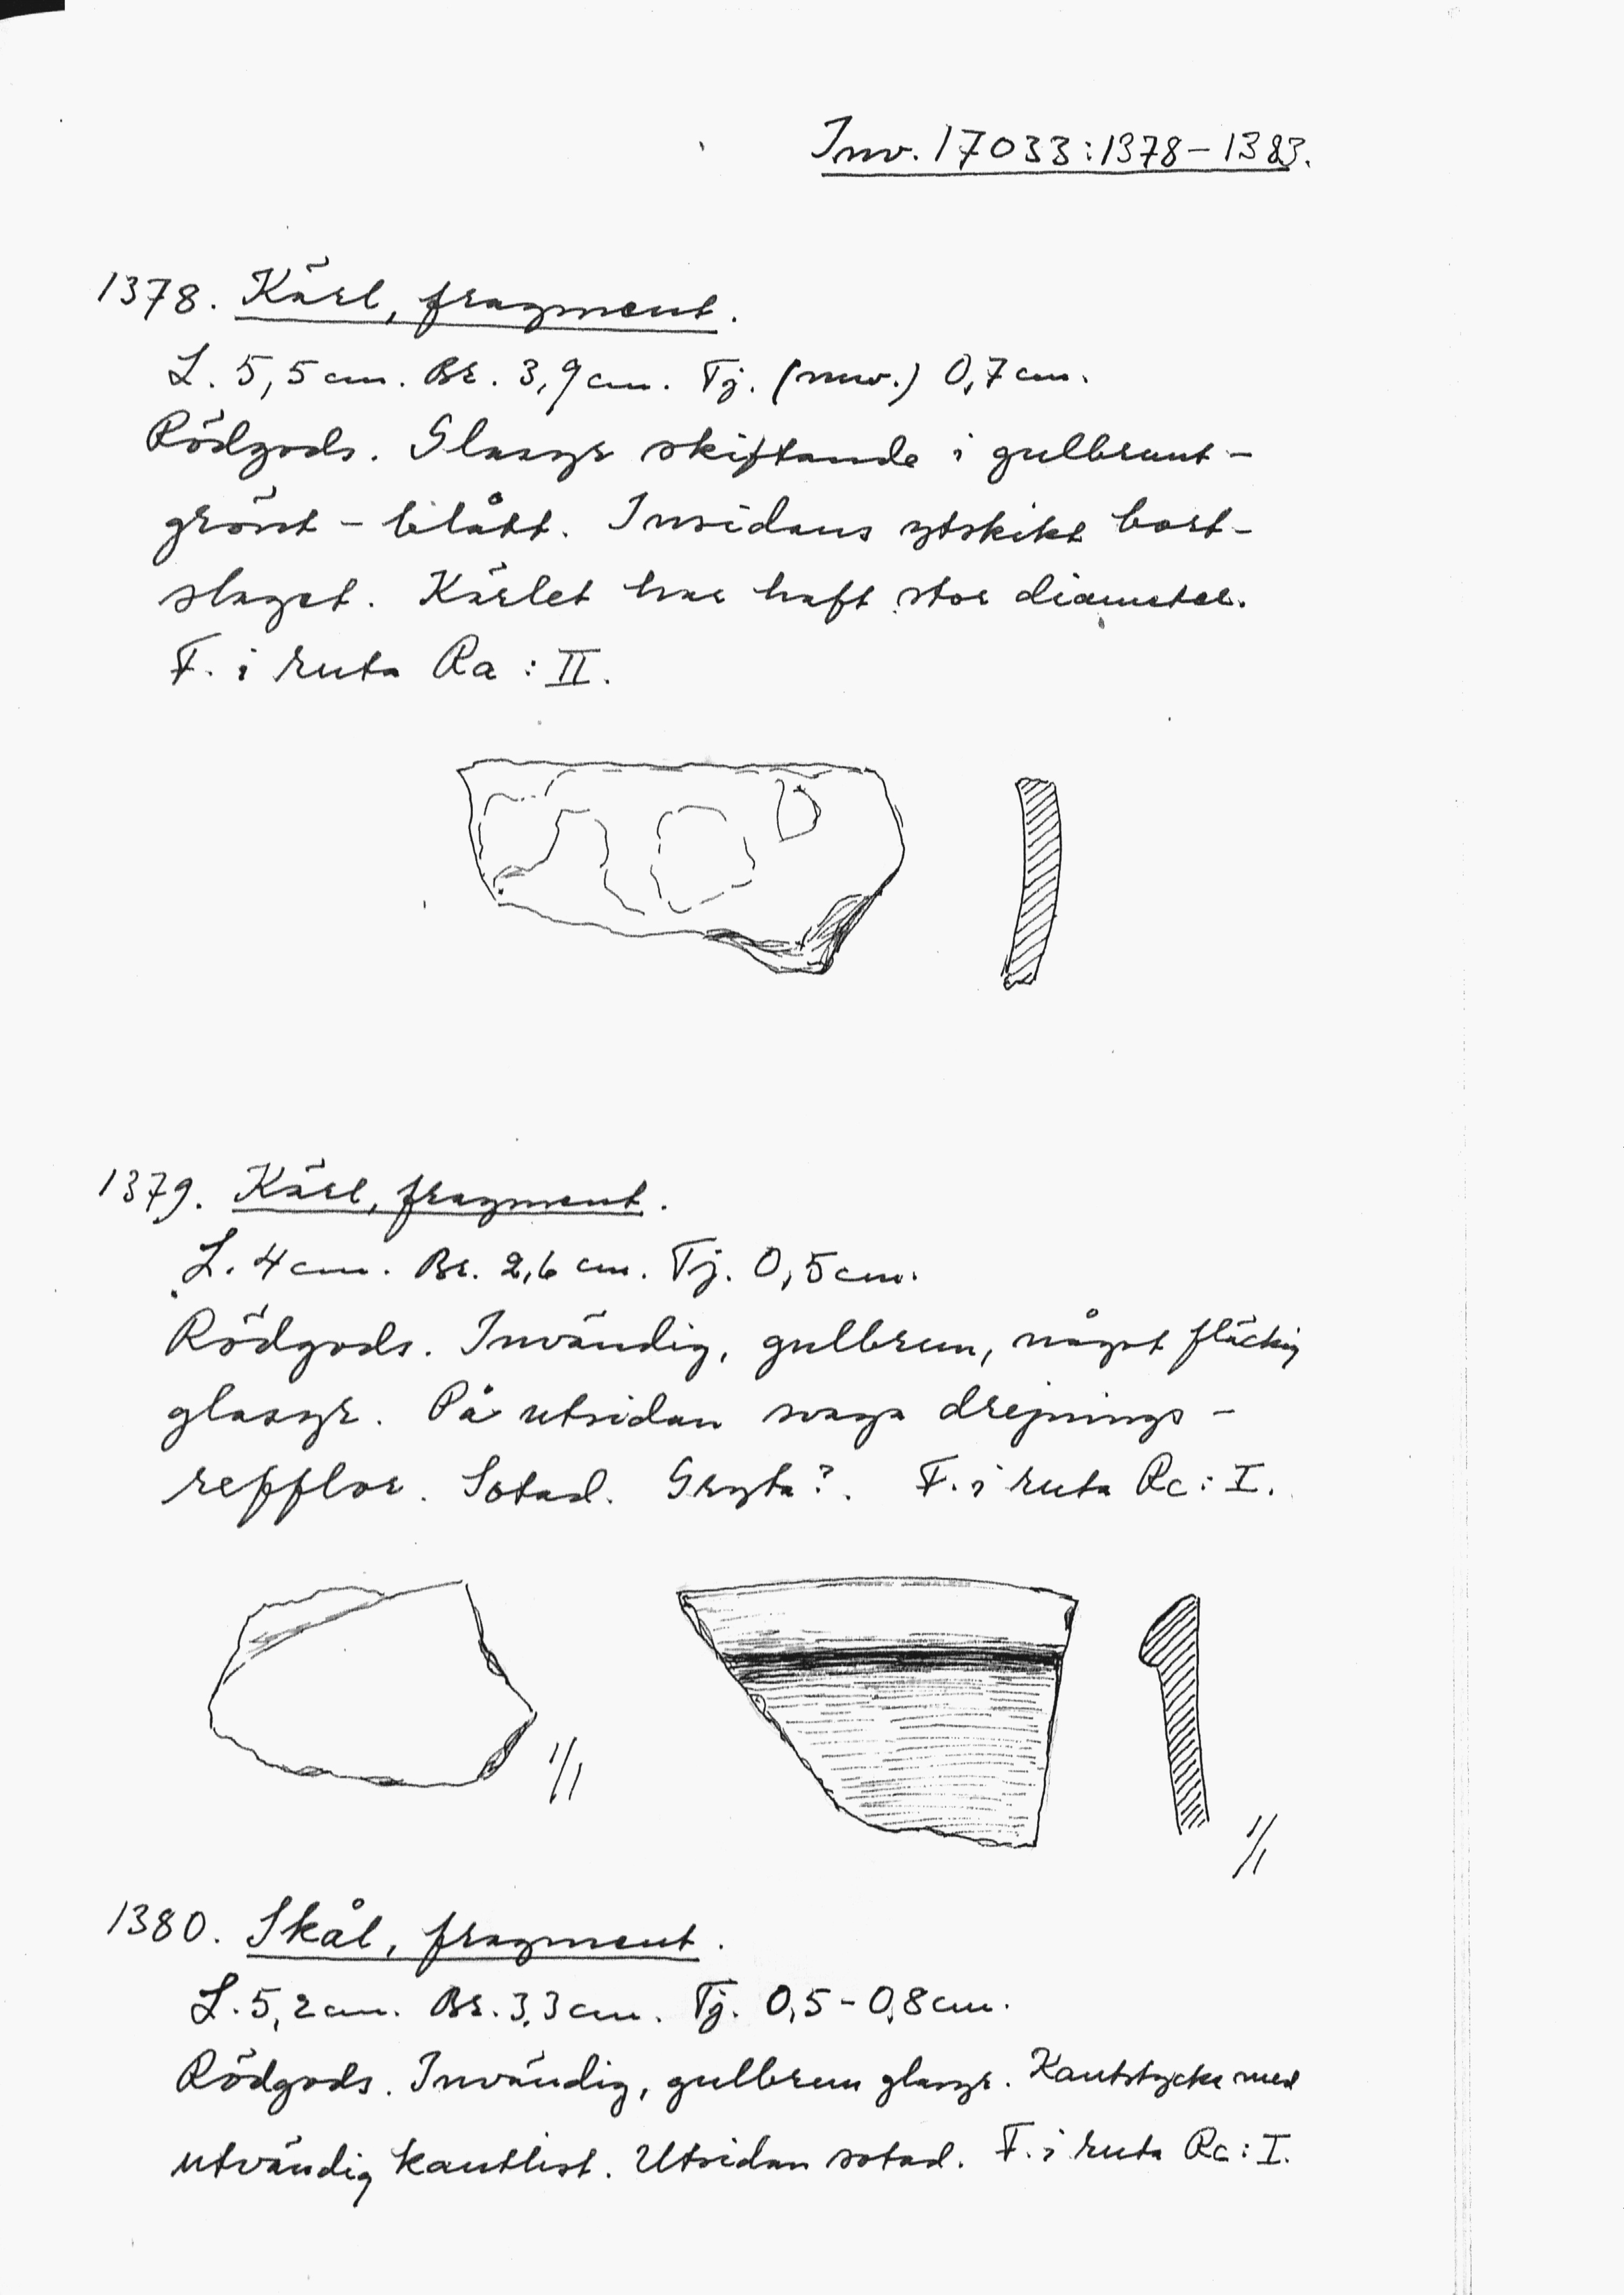 Inv. 17033:1378-1383.
1378. Kärl, fragment.
L. 5,5 cm. Br. 3,9 cm. Tj. (nuv.) 0,7 cm.
Rödgods. Glasyr skiftande i gulbrunt-
grönt - blått. Insidans ytskikt bort-
slaget. Kärlet har haft stor diameter.
F. i ruta Ra : II.
1379. Kärl, fragment.
L. 4 cm. Br. 2,6 cm. Tj. 0,5 cm.
Rödgods. Invändig, gulbrun, något fläckig
glasyr. På utsidan svaga drejnings-
refflor. Sotad. Gryta?. F. i ruta Rc : I.
1/1
1/1
1380. Skål, fragment.
L. 5,2 cm. Br. 3,3 cm. Tj. 0,5 - 0,8 cm.
Rödgods. Invändig, gulbrun glasyr. Kantstycke med
utvändig kantlist. Utsidan sotad. F. i ruta Rc : I.